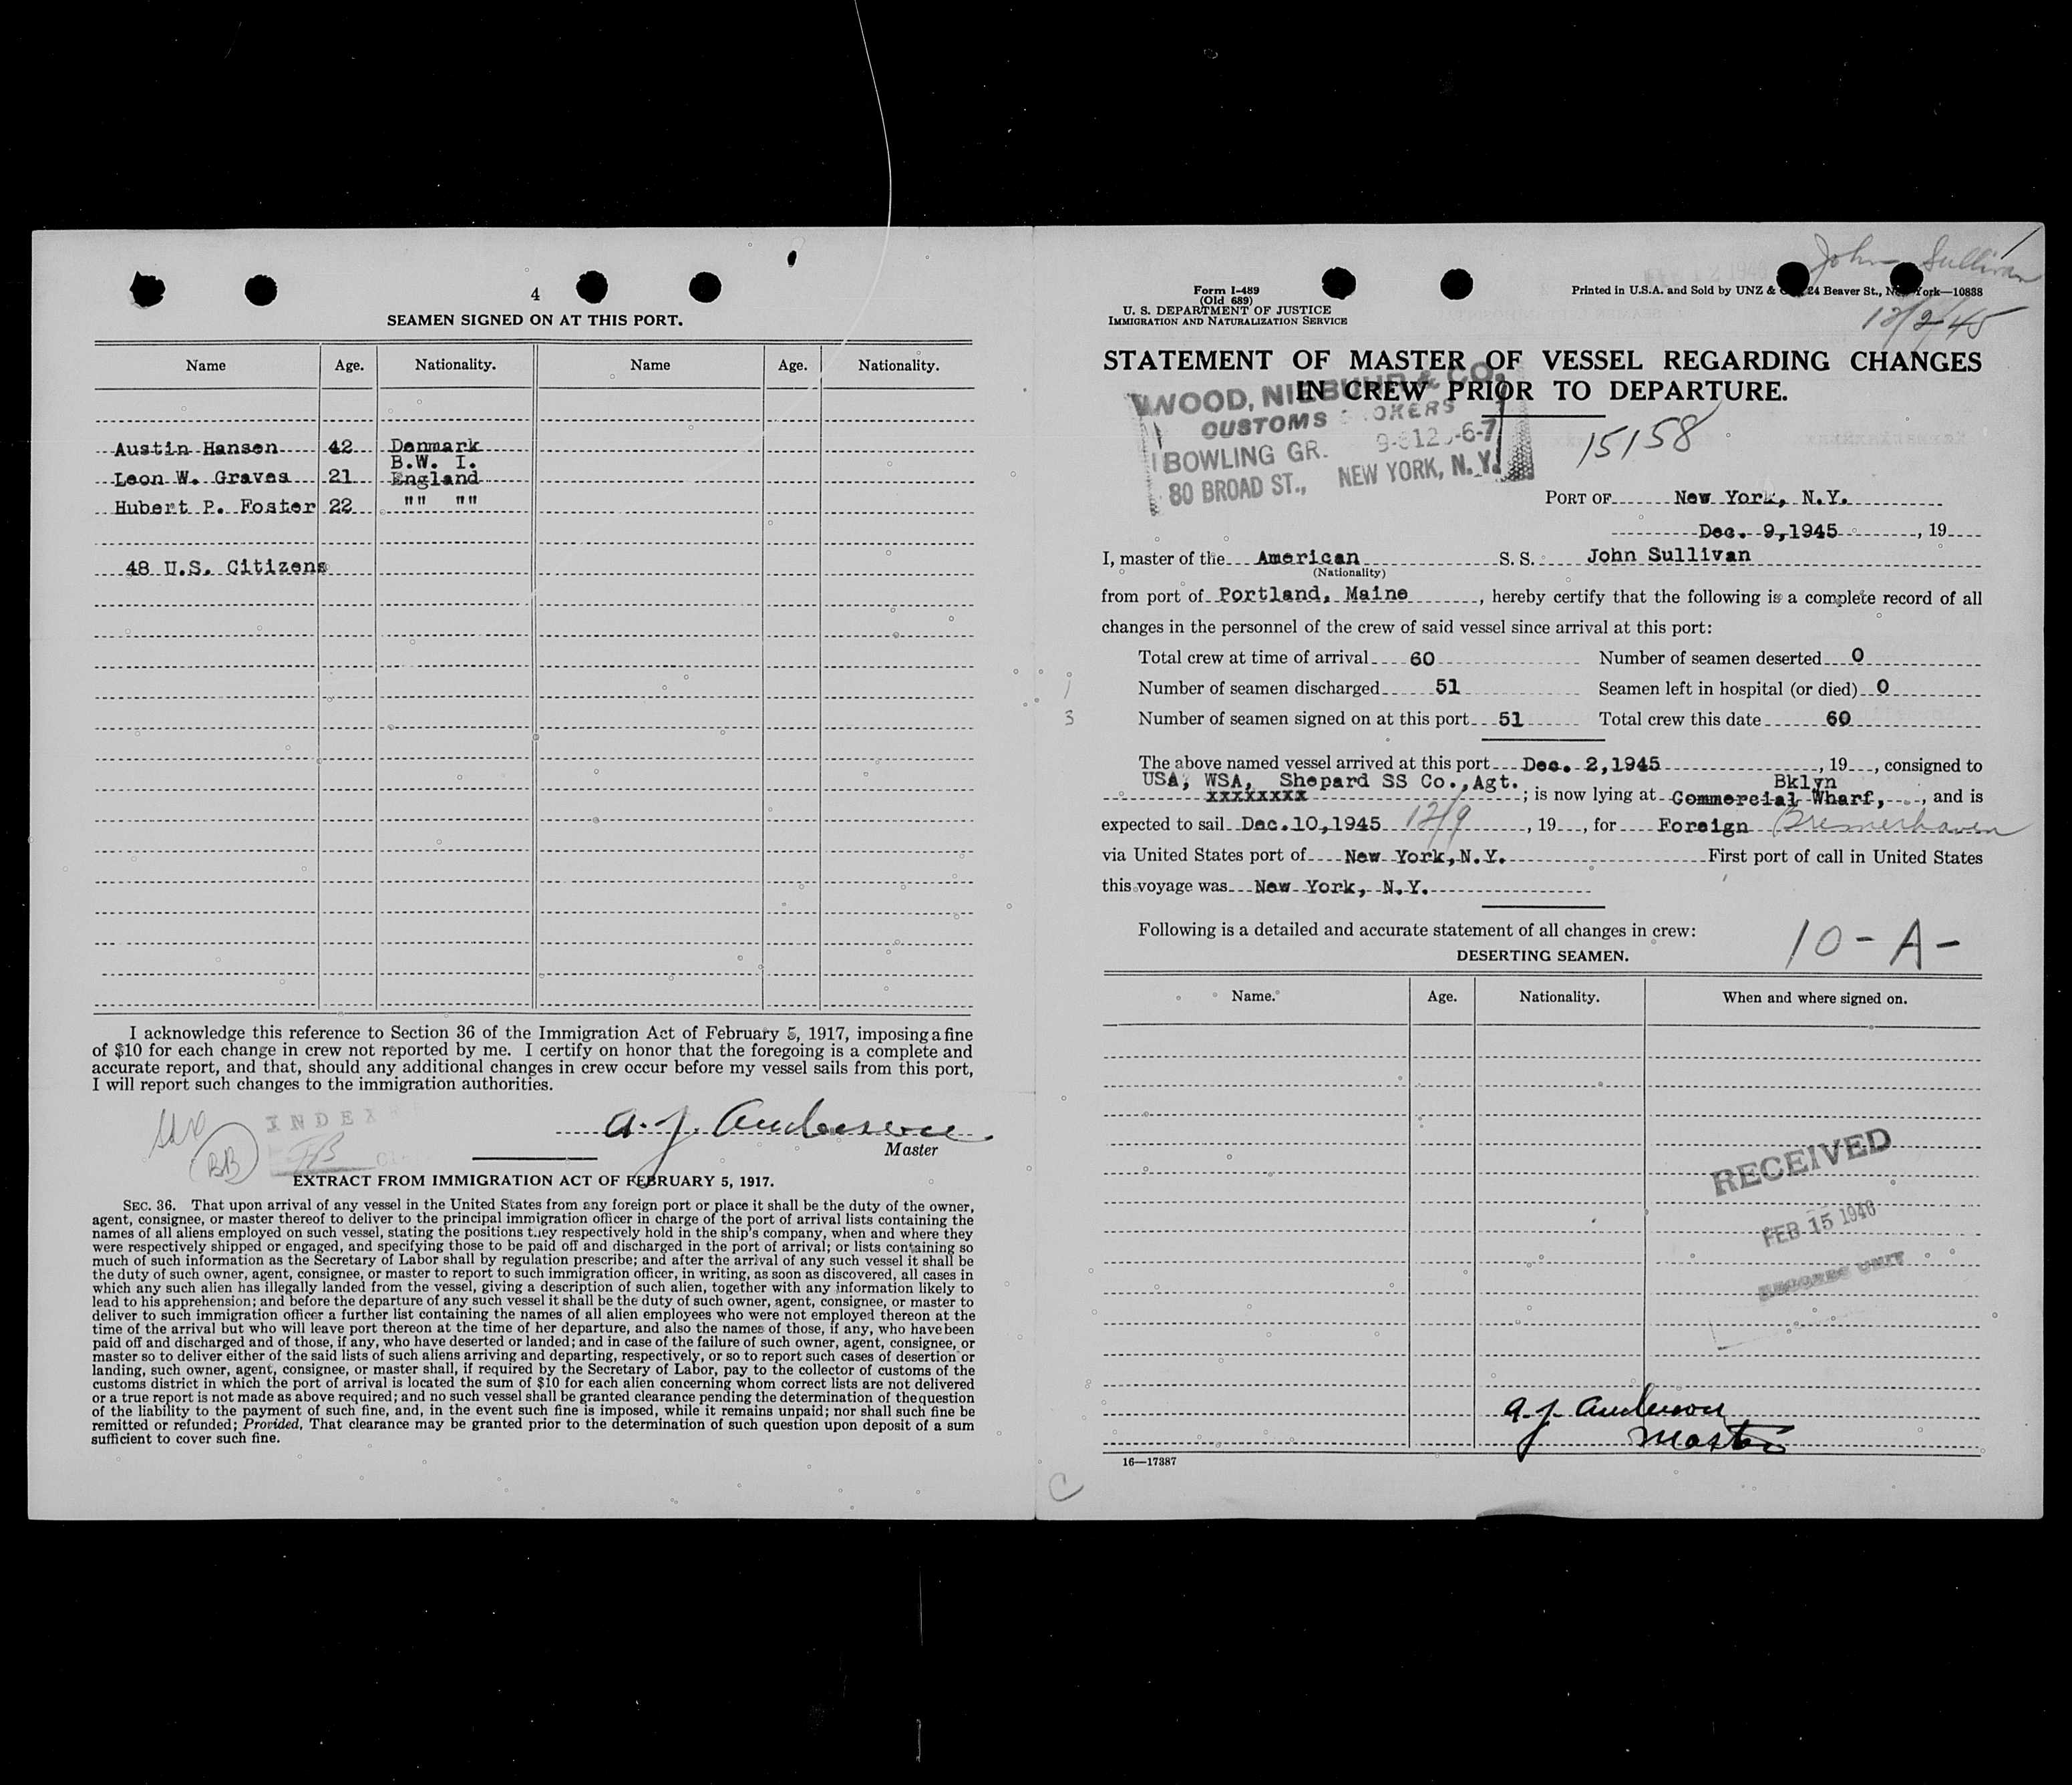 4
SEAMEN SIGNED ON AT THIS PORT.
Name Age. Nationality. Name Age. Nationality.
Austin Hansen 42 Denmark
B.W. I.
Leon W. Graves 21 England
Hubert P. Foster 22 "" ""
48 U.S. Citizens
I acknowledge this reference to Section 36 of the Immigration Act of February 5, 1917, imposing a fine
of $10 for each change in crew not reported by me. I certify on honor that the foregoing is a complete and
accurate report, and that, should any additional changes in crew occur before my vessel sails from this port,
I will report such changes to the immigration authorities.
INDEX
BB
A. J. Anderson
Master
EXTRACT FROM IMMIGRATION ACT OF FEBRUARY 5, 1917.
SEC. 36. That upon arrival of any vessel in the United States from any foreign port or place it shall be the duty of the owner,
agent, consignee, or master thereof to deliver to the principal immigration officer in charge of the port of arrival lists containing the
names of all aliens employed on such vessel, stating the positions they respectively hold in the ship's company, when and where they
were respectively shipped or engaged, and specifying those to be paid off and discharged in the port of arrival; or lists containing so
much of such information as the Secretary of Labor shall by regulation prescribe; and after the arrival of any such vessel it shall be
the duty of such owner, agent, consignee, or master to report to such immigration officer, in writing, as soon as discovered, all cases in
which any such alien has illegally landed from the vessel, giving a description of such alien, together with any information likely to
lead to his apprehension; and before the departure of any such vessel it shall be the duty of such owner, agent, consignee, or master to
deliver to such immigration officer a further list containing the names of all alien employees who were not employed thereon at the
time of the arrival but who will leave port thereon at the time of her departure, and also the names of those, if any, who have been
paid off and discharged and of those, if any, who have deserted or landed; and in case of the failure of such owner, agent, consignee, or
master so to deliver either of the said lists of such aliens arriving and departing, respectively, or so to report such cases of desertion or
landing, such owner, agent, consignee, or master shall, if required by the Secretary of Labor, pay to the collector of customs of the
customs district in which the port of arrival is located the sum of $10 for each alien concerning whom correct lists are not delivered
or a true report is not made as above required; and no such vessel shall be granted clearance pending the determination of the question
of the liability to the payment of such fine, and, in the event such fine is imposed, while it remains unpaid; nor shall such fine be
remitted or refunded; Provided, That clearance may be granted prior to the determination of such question upon deposit of a sum
sufficient to cover such fine.
John Sullivan
12/2/45
Form I-489
(Old 689)
U. S. DEPARTMENT OF JUSTICE
IMMIGRATION AND NATURALIZATION SERVICE
Printed in U.S.A. and Sold by UNZ & 24 Beaver St., New York—10838
STATEMENT OF MASTER OF VESSEL REGARDING CHANGES
IN CREW PRIOR TO DEPARTURE.
WOOD, NIEBUHR & CO.
CUSTOMS BROKERS
BOWLING GR.
80 BROAD ST., NEW YORK, N.Y.
15158
PORT OF New York, N.Y.
Dec. 9,1945, 19
I, master of the American S. S. John Sullivan
(Nationality)
from port of Portland, Maine, hereby certify that the following is a complete record of all
changes in the personnel of the crew of said vessel since arrival at this port:
Total crew at time of arrival 60 Number of seamen deserted 0
1 Number of seamen discharged 51 Seamen left in hospital (or died) 0
3 Number of seamen signed on at this port 51 Total crew this date 60
The above named vessel arrived at this port Dec. 2,1945, 19, consigned to
USA, WSA, Shepard SS Co.,Agt. Bklyn
xxxxxxxx ; is now lying at Commercial Wharf, , and is
expected to sail Dec.10,1945 12/9, 19, for Foreign Bremerhaven
via United States port of New York,N.Y. First port of call in United States
this voyage was New York, N.Y.
Following is a detailed and accurate statement of all changes in crew:
10-A-
DESERTING SEAMEN.
Name. Age. Nationality. When and where signed on.
RECEIVED
FEB 15 1946
RECORDS UNIT
A. J. Anderson
Master
16—17387
C